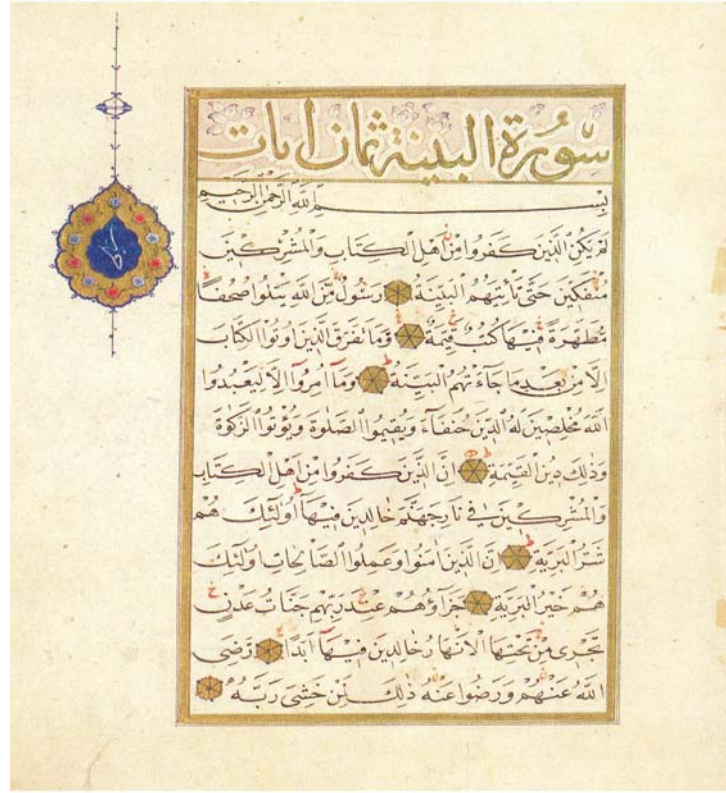 سُورَةُ الْبَيِّنَةِ ثَمَانُ اٰيَاتٍ
بِسْمِ اللّٰهِ الرَّحْمٰنِ الرَّحِيمِ
لَمْ يَكُنِ الَّذِينَ كَفَرُوا مِنْ اَهْلِ الْكِتَابِ وَالْمُشْرِكِينَ
مُنْفَكِّينَ حَتّٰى تَأْتِيَهُمُ الْبَيِّنَةُ رَسُولٌ مِّنَ اللّٰهِ يَتْلُوا صُحُفًا
مُّطَهَّرَةً فِيهَا كُتُبٌ قَيِّمَةٌ وَمَا تَفَرَّقَ الَّذِينَ اُوتُوا الْكِتَابَ
اِلَّا مِنْ بَعْدِ مَا جَآءَتْهُمُ الْبَيِّنَةُ وَمَآ اُمِرُوٓا اِلَّا لِيَعْبُدُوا
اللّٰهَ مُخْلِصِينَ لَهُ الدِّينَ حُنَفَآءَ وَيُقِيمُوا الصَّلٰوةَ وَيُؤْتُوا الزَّكٰوةَ
وَذٰلِكَ دِينُ الْقَيِّمَةِ اِنَّ الَّذِينَ كَفَرُوا مِنْ اَهْلِ الْكِتَابِ
وَالْمُشْرِكِينَ فِي نَارِ جَهَنَّمَ خَالِدِينَ فِيهَآ اُولٰٓئِكَ هُمْ
شَرُّ الْبَرِيَّةِ اِنَّ الَّذِينَ اٰمَنُوا وَعَمِلُوا الصَّالِحَاتِ اُولٰٓئِكَ
هُمْ خَيْرُ الْبَرِيَّةِ جَزَآؤُهُمْ عِنْدَ رَبِّهِمْ جَنَّاتُ عَدْنٍ
تَجْرِى مِنْ تَحْتِهَا الْاَنْهَارُ خَالِدِينَ فِيهَآ اَبَدًا رَّضِىَ
اللّٰهُ عَنْهُمْ وَرَضُوا عَنْهُ ذٰلِكَ لِمَنْ خَشِىَ رَبَّهُ